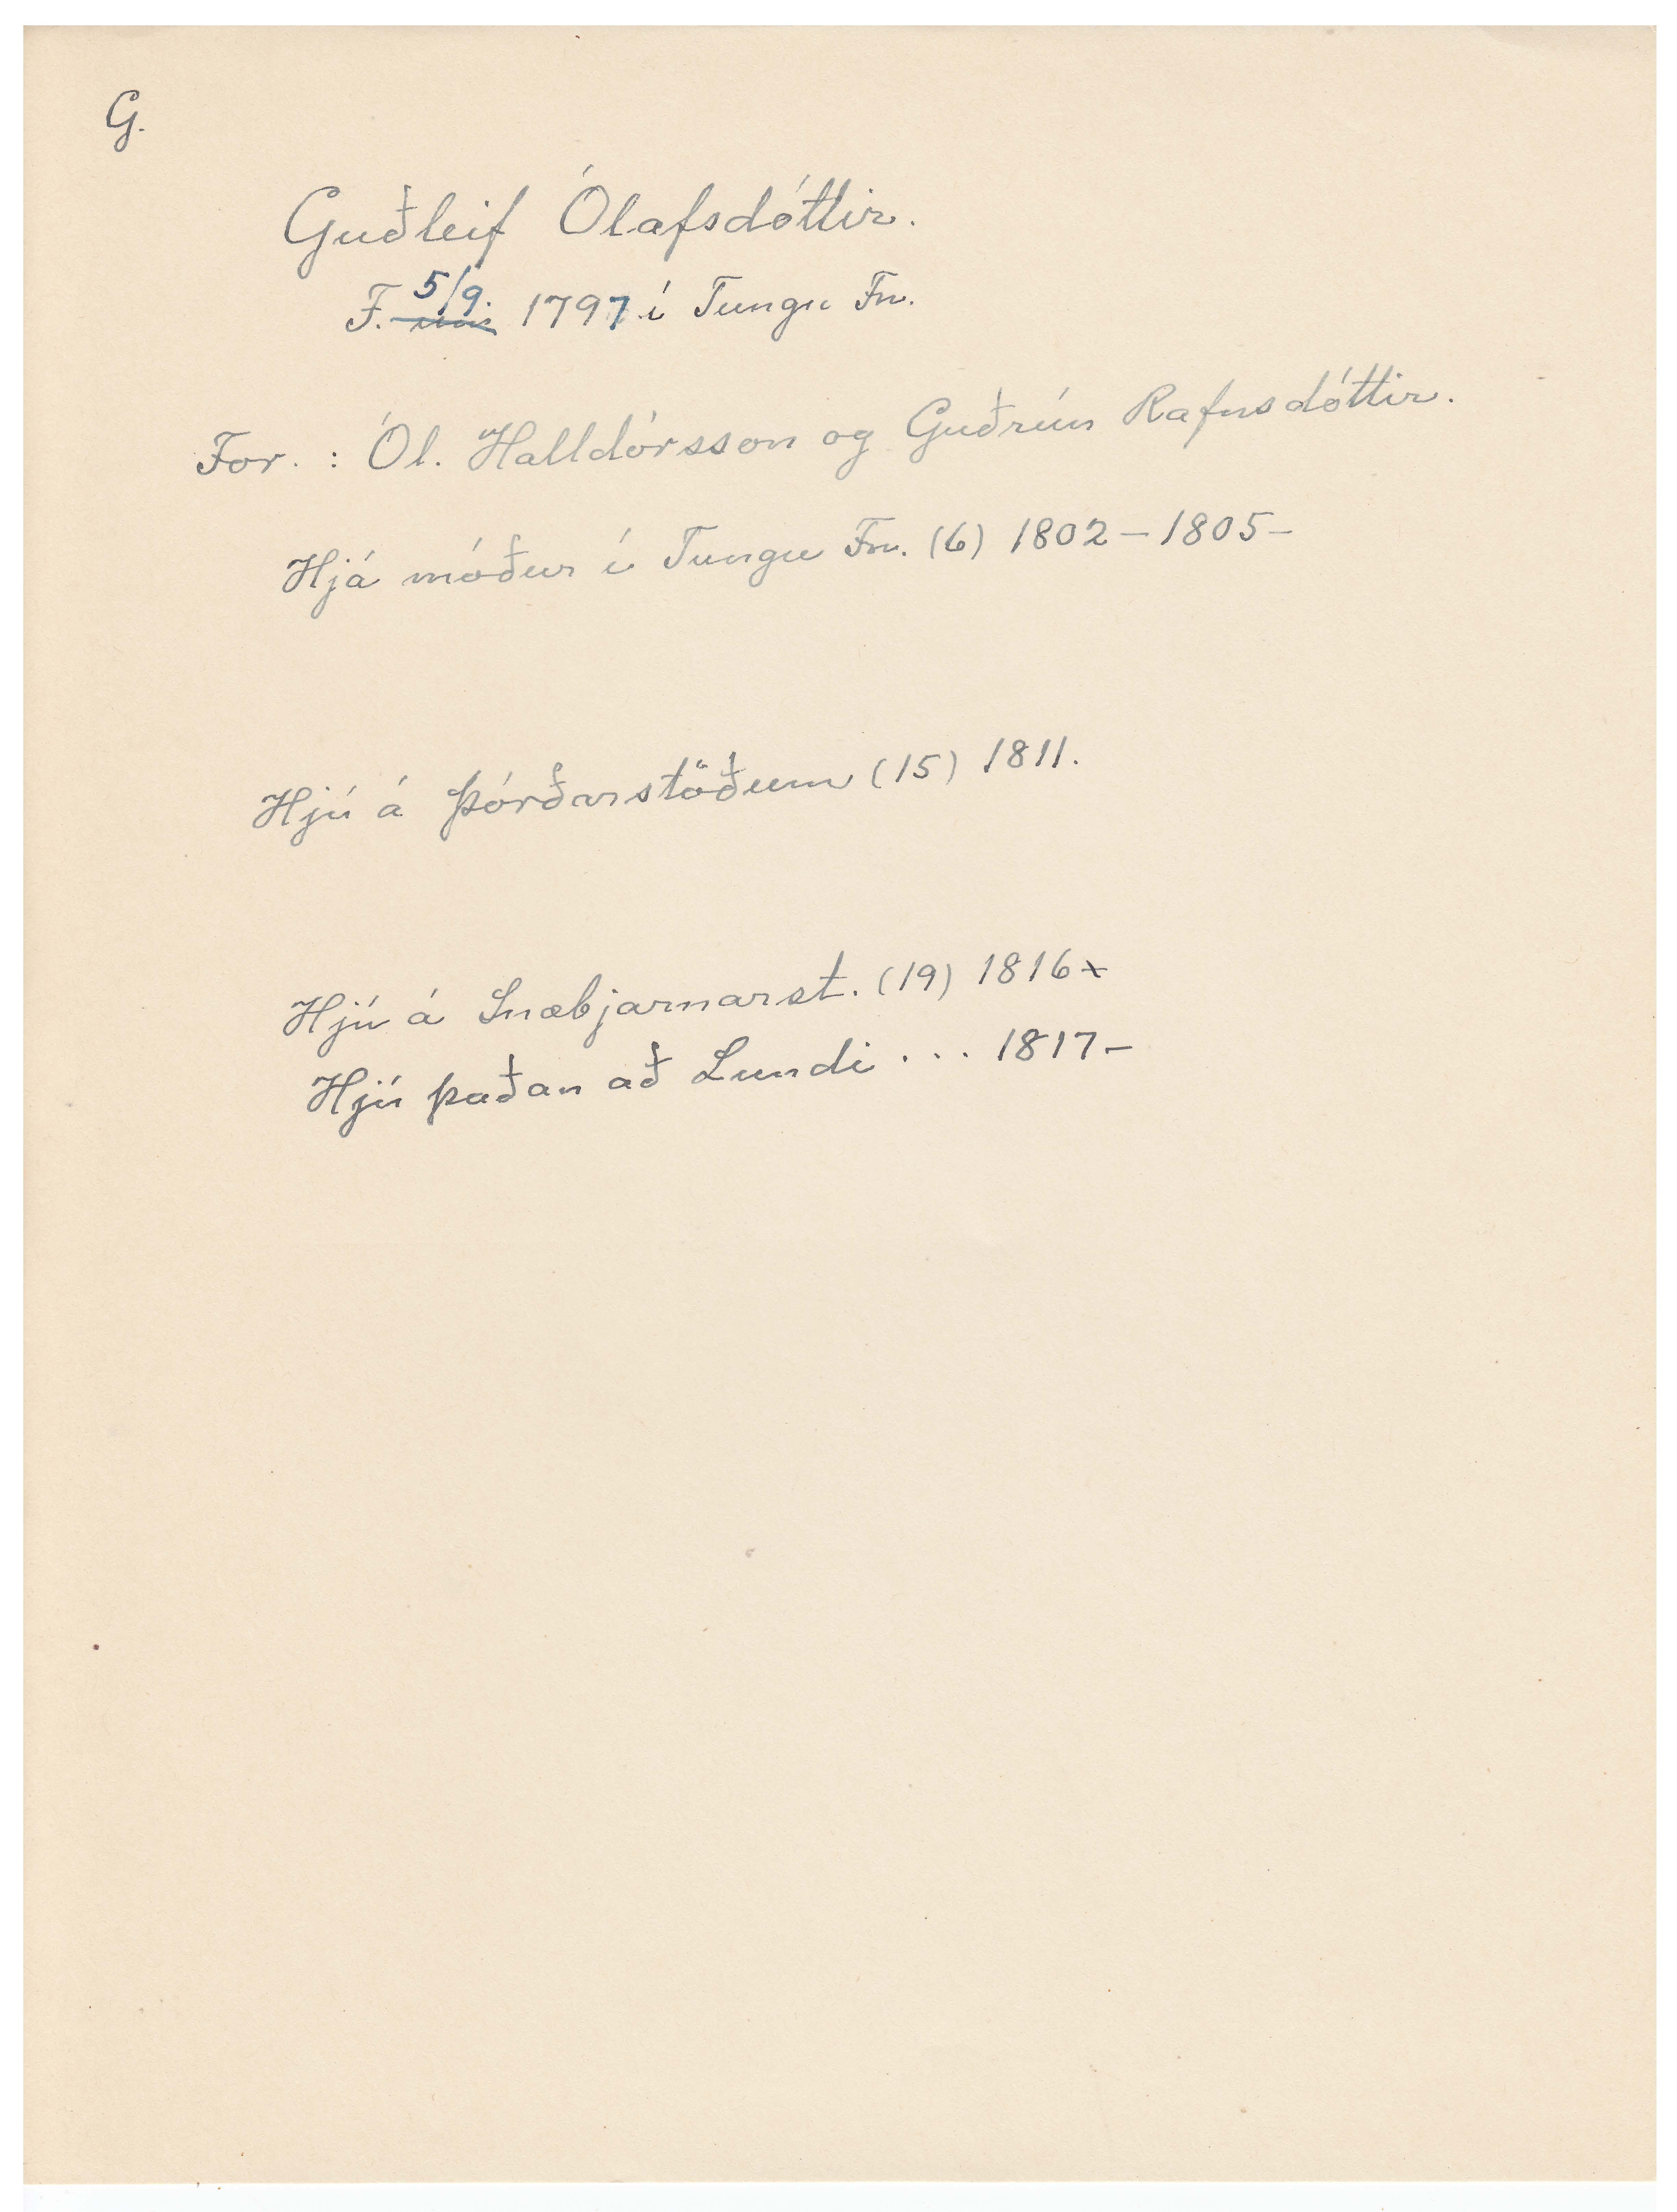 G.
Guðleif Ólafsdóttir.
F. um 5/9. 1797 í Tungu Fn.
For. : Ól. Halldórsson og Guðrún Rafnsdóttir.
Hjá móður í Tungu Fn. (6) 1802 - 1805 -
Hjú á Þórðarstöðum (15) 1811.
Hjú á Snæbjarnarst. (19) 1816 x
Hjú þaðan að Lundi . . . 1817 -